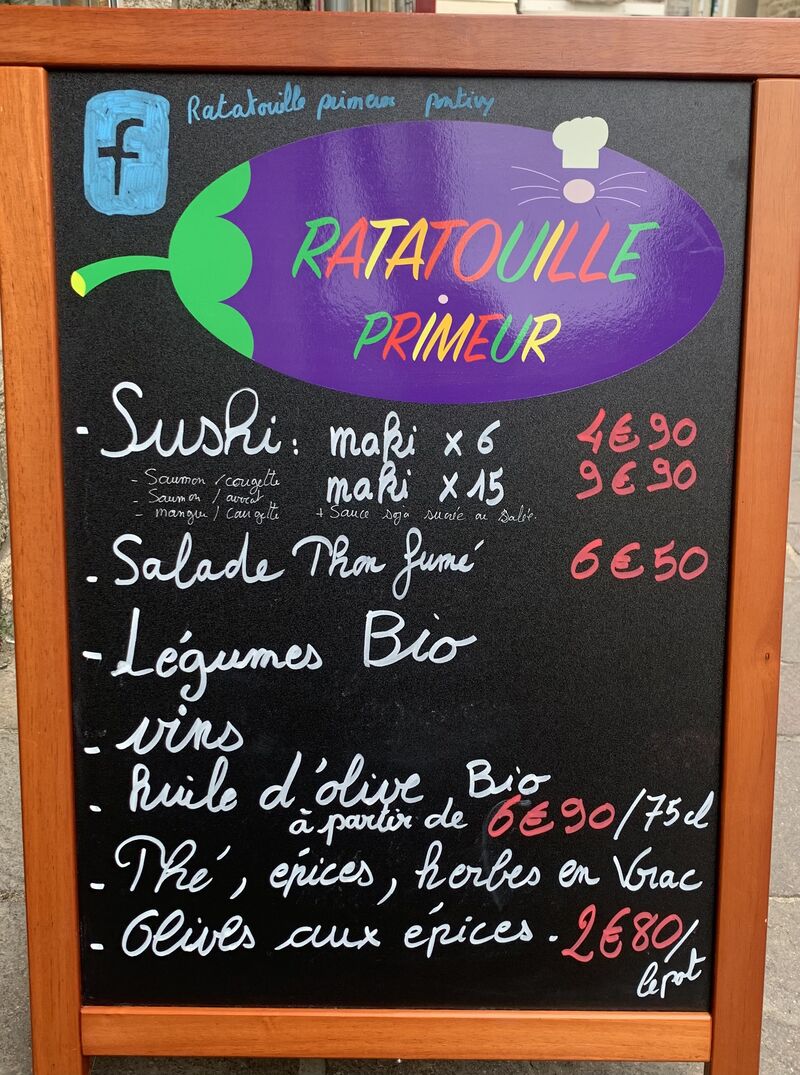 f Ratatouille primeur pontivy
RATATOUILLE
PRIMEUR
- Sushi : maki x 6 4€90
- Saumon / cougette maki x 15 9€90
- Saumon / avocat
- mangue / cougette + Sauce soja sucrée ou salée.
- Salade Thon fumé 6€50
- Légumes Bio
- vins
- huile d'olive Bio
à partir de 6€90 / 75cl
- Thé, épices, herbes en Vrac
- Olives aux épices. 2€80 /
le pot